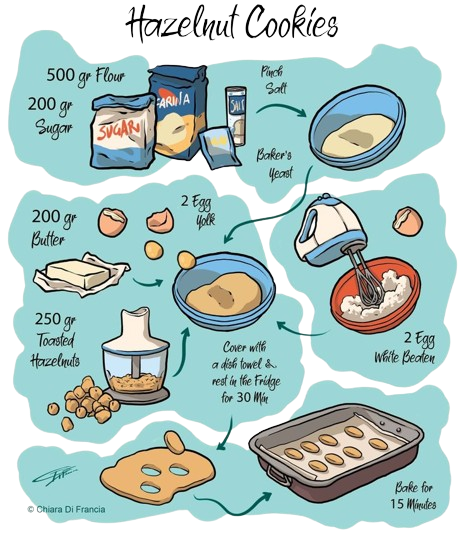 Hazelnut Cookies
500 gr Flour
200 gr
Sugar
SUGAR
FARINA
SALT
Pinch
Salt
Baker's
Yeast
200 gr
Butter
2 Egg
Yolk
250 gr
Toasted
Hazelnuts
2 Egg
White Beaten
Cover with
a dish towel &
rest in the Fridge
for 30 Min
Bake for
15 Minutes
© Chiara Di Francia